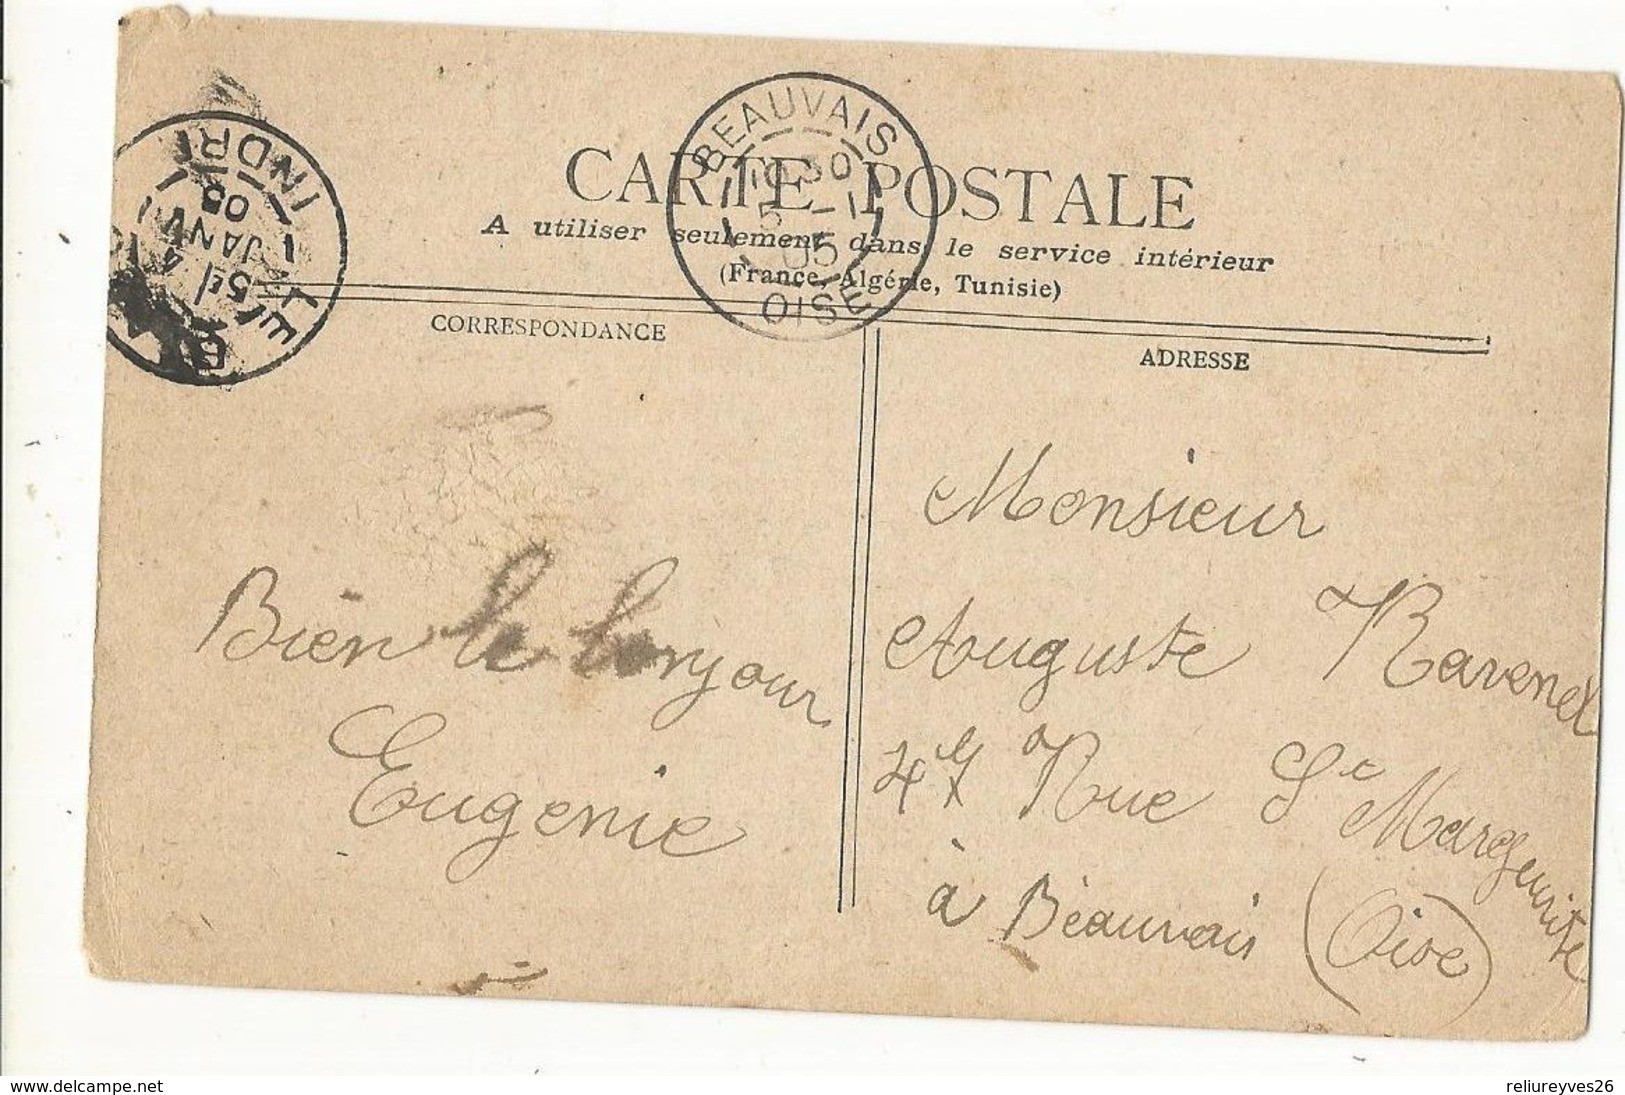 BEAUVAIS
10 30
5 - 1
05
OISE
INDRE
05
JANV
4
CARTE POSTALE
A utiliser seulement dans le service intérieur
(France, Algérie, Tunisie)
CORRESPONDANCE
ADRESSE
Bien le bonjour
Eugenie
Monsieur
Auguste Ravenel
47 Rue Ste Margeurite
à Beauvais (Oise)
www.delcampe.net
reliureyves26